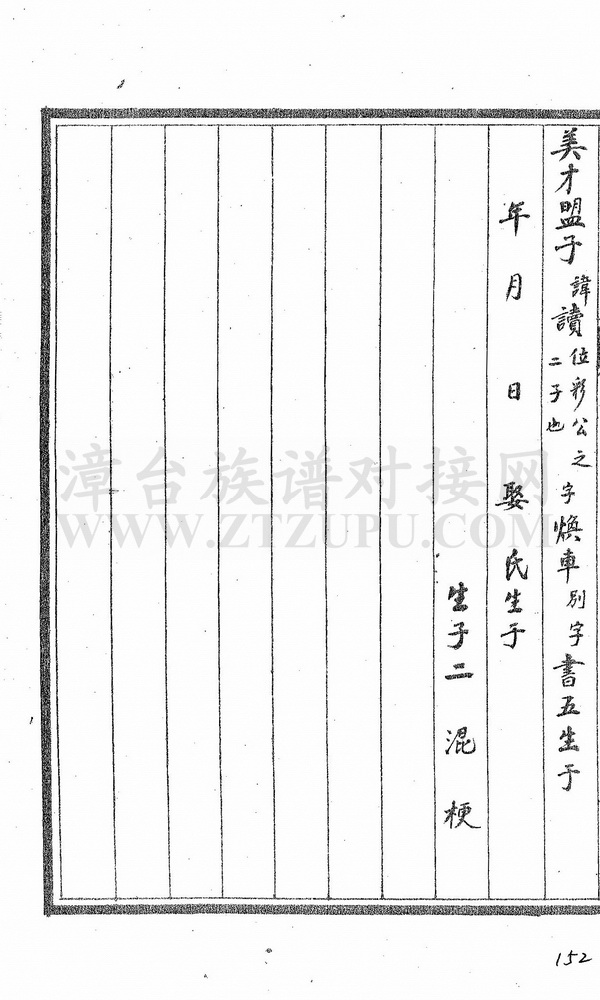 美才盟子諱讀位彩公之二子也字煥車別字書五生于
年月日娶氏生于
生子二混梗
漳台族谱对接网
WWW.ZTZUPU.COM
152